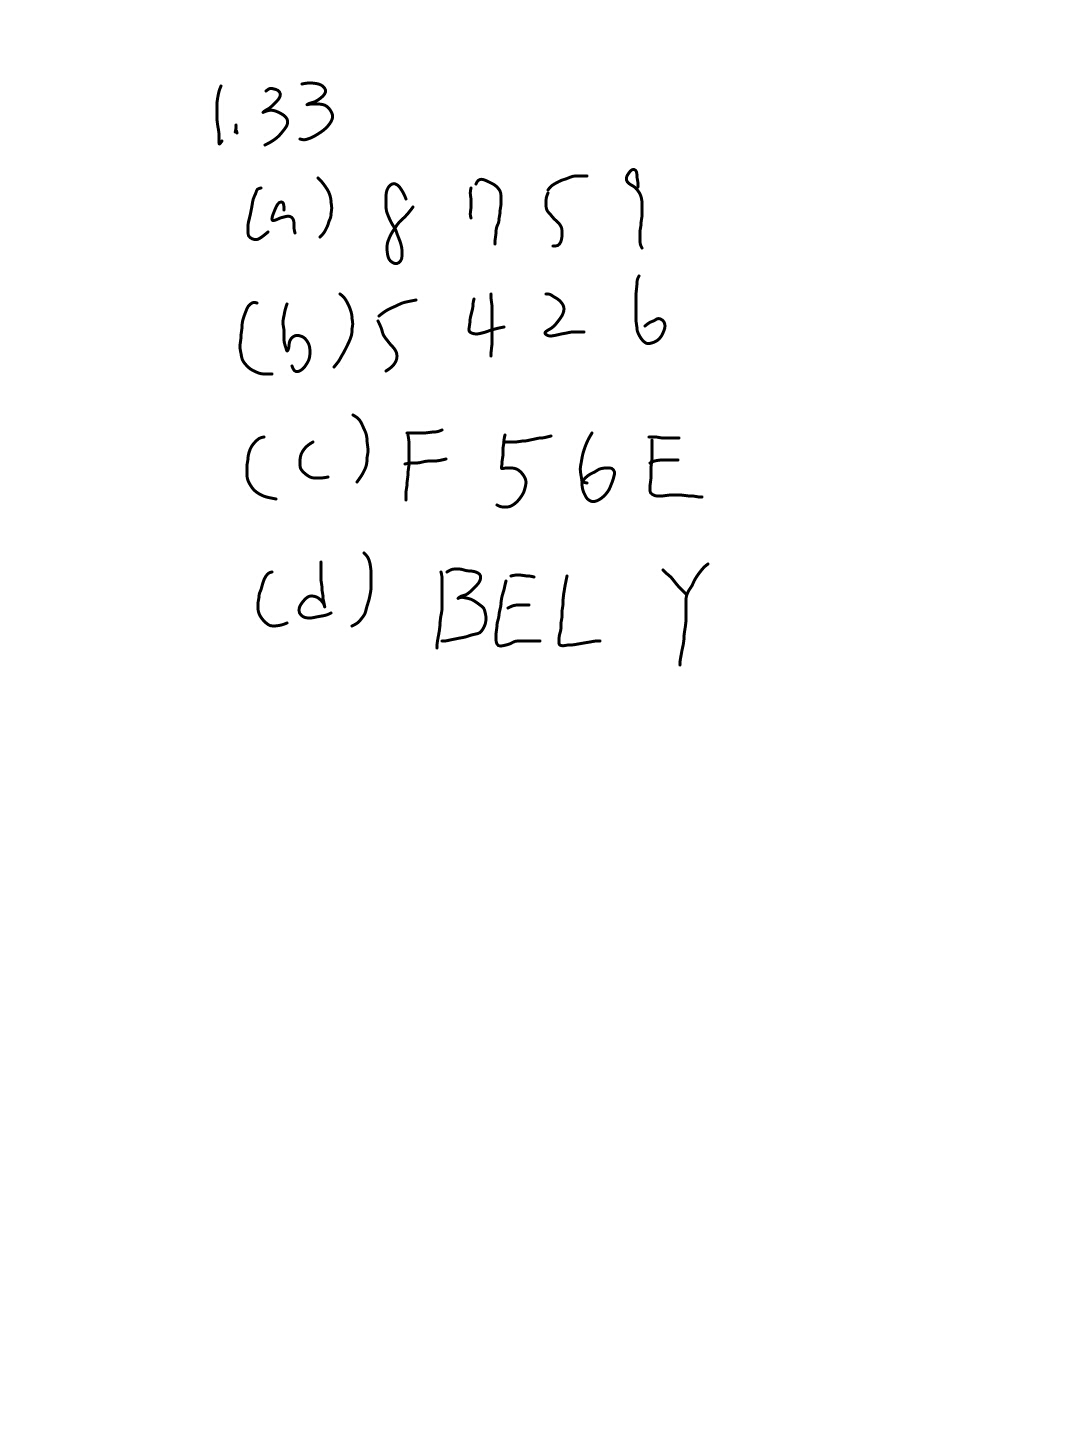 1.33
(a) 8 7 5 9
(b) 5 4 2 6
(c) F 5 6 E
(d) BEL Y